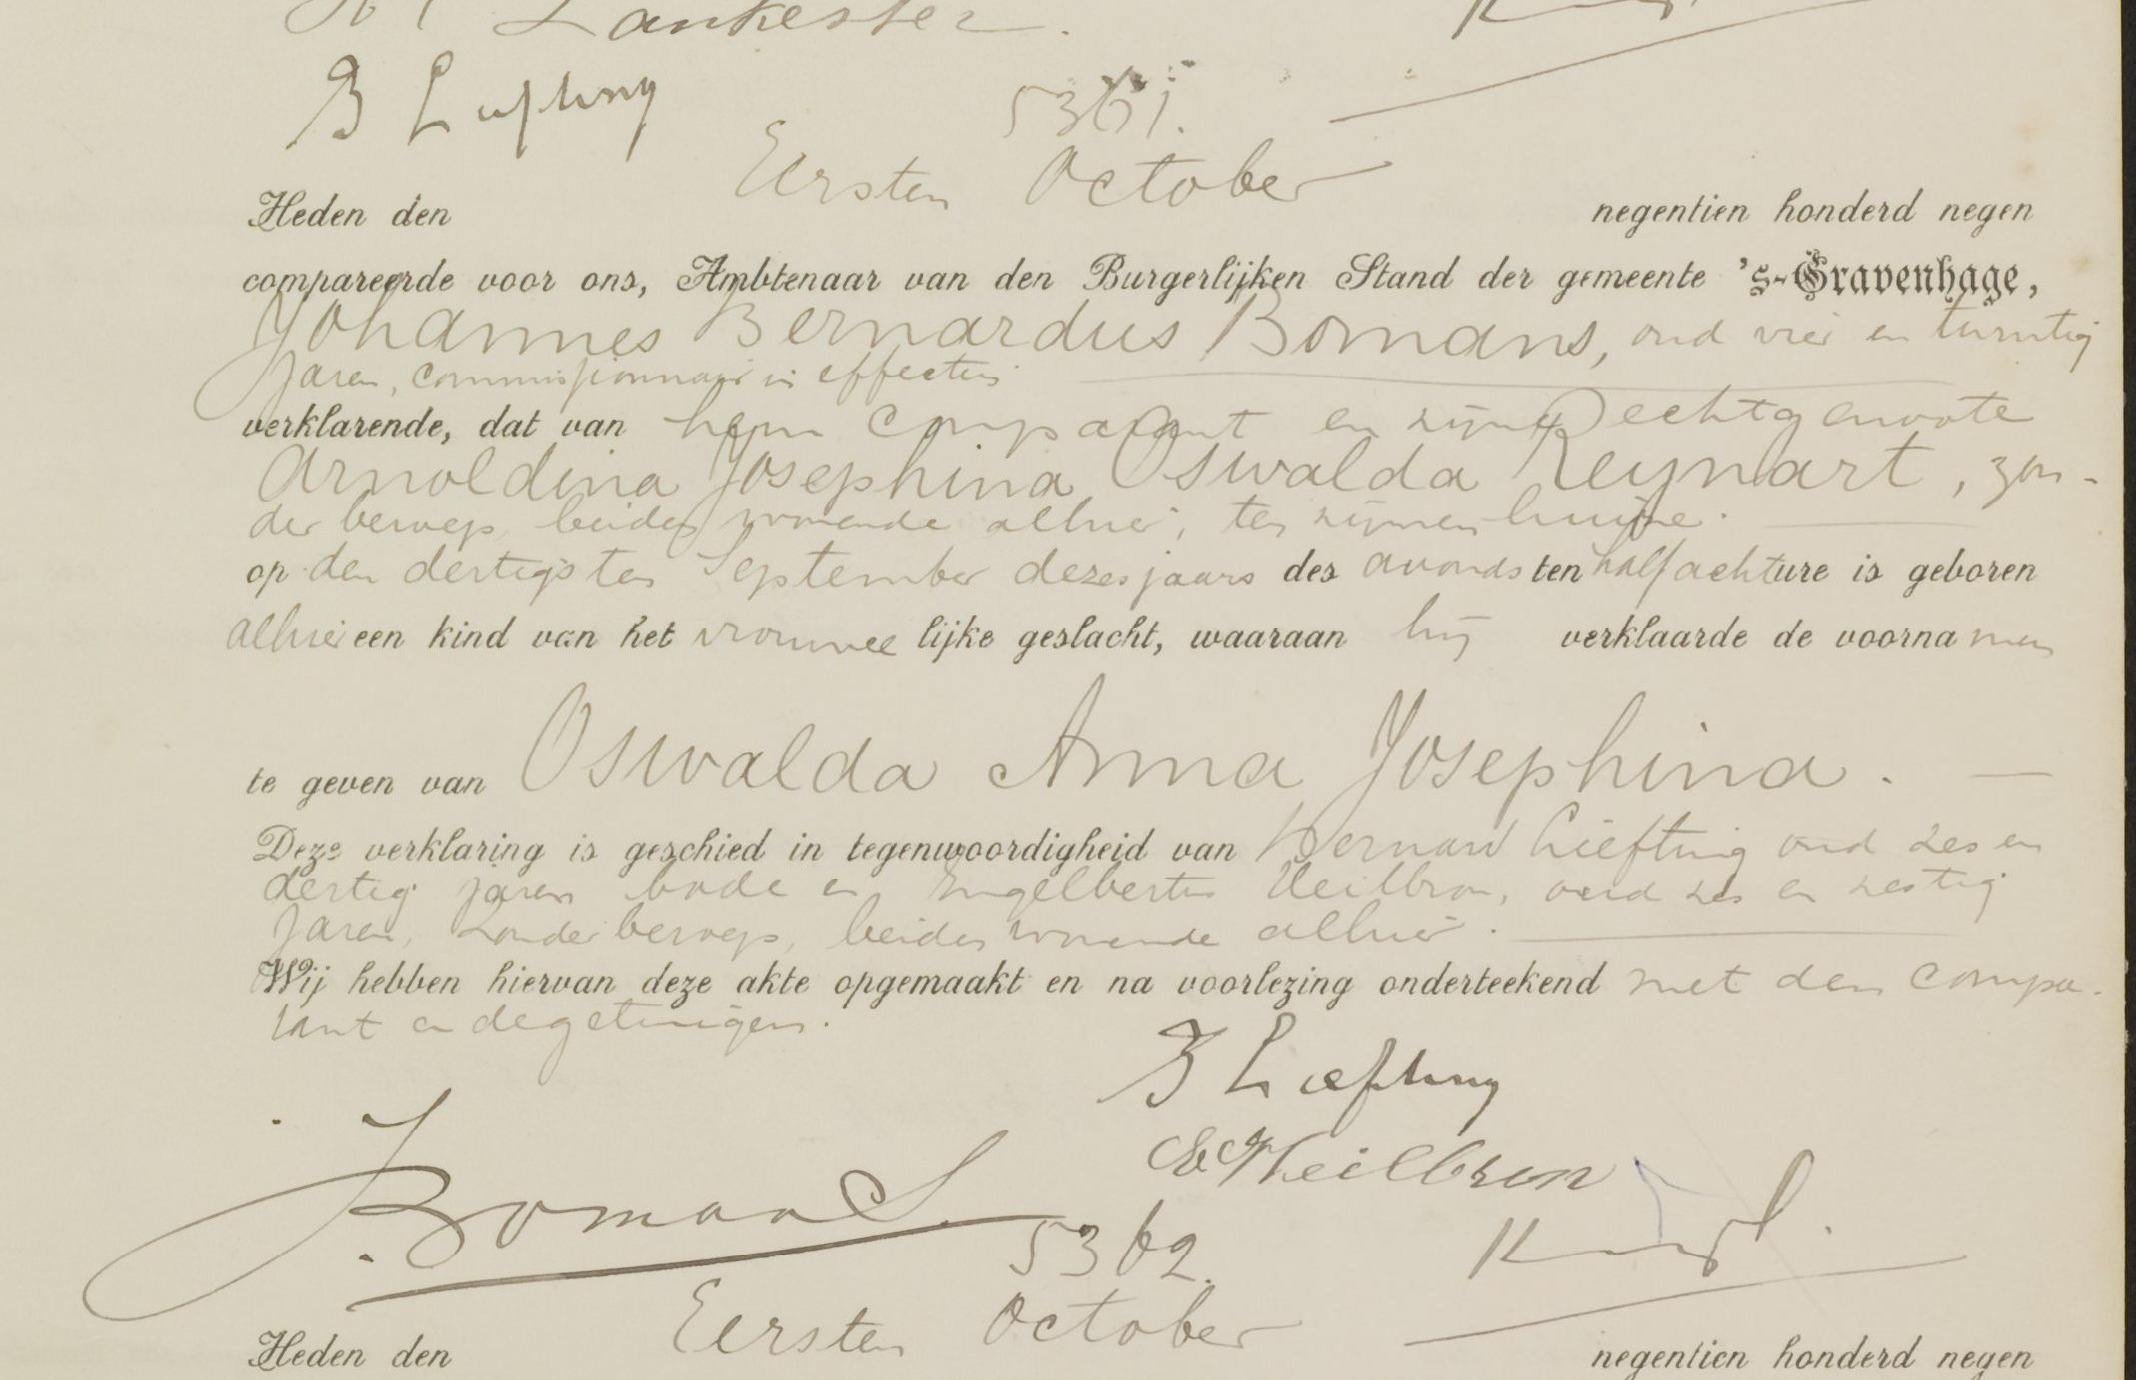 Lankester.
B Liefting
5361.
Eersten October
Heden den negentien honderd negen
compareerde voor ons, Ambtenaar van den Burgerlijken Stand der gemeente 's-Gravenhage,
Johannes Bernardus Bomans, oud vier en twintig
jaren, commissionnair in effecten
verklarende, dat van hem comparant en zijne echtgenoote
Arnoldina Josephina Oswalda Reynart, zon-
der beroep, beiden wonende alhier, ten zijnen huize.
op den dertigsten September dezes jaars des avonds ten half acht ure is geboren
alhier een kind van het vrouwelijke geslacht, waaraan hij verklaarde de voornamen
te geven van Oswalda Anna Josephina.
Deze verklaring is geschied in tegenwoordigheid van Bernard Liefting oud zes en
dertig jaren bode en Engelbertus Heilbron, oud zes en zestig
jaren, zonder beroep, beiden wonende alhier.
Wij hebben hiervan deze akte opgemaakt en na voorlezing onderteekend met den compa-
rant en de getuigen.
B Liefting
E Heilbron
J. Bomans
5362.
Eersten October
Heden den negentien honderd negen